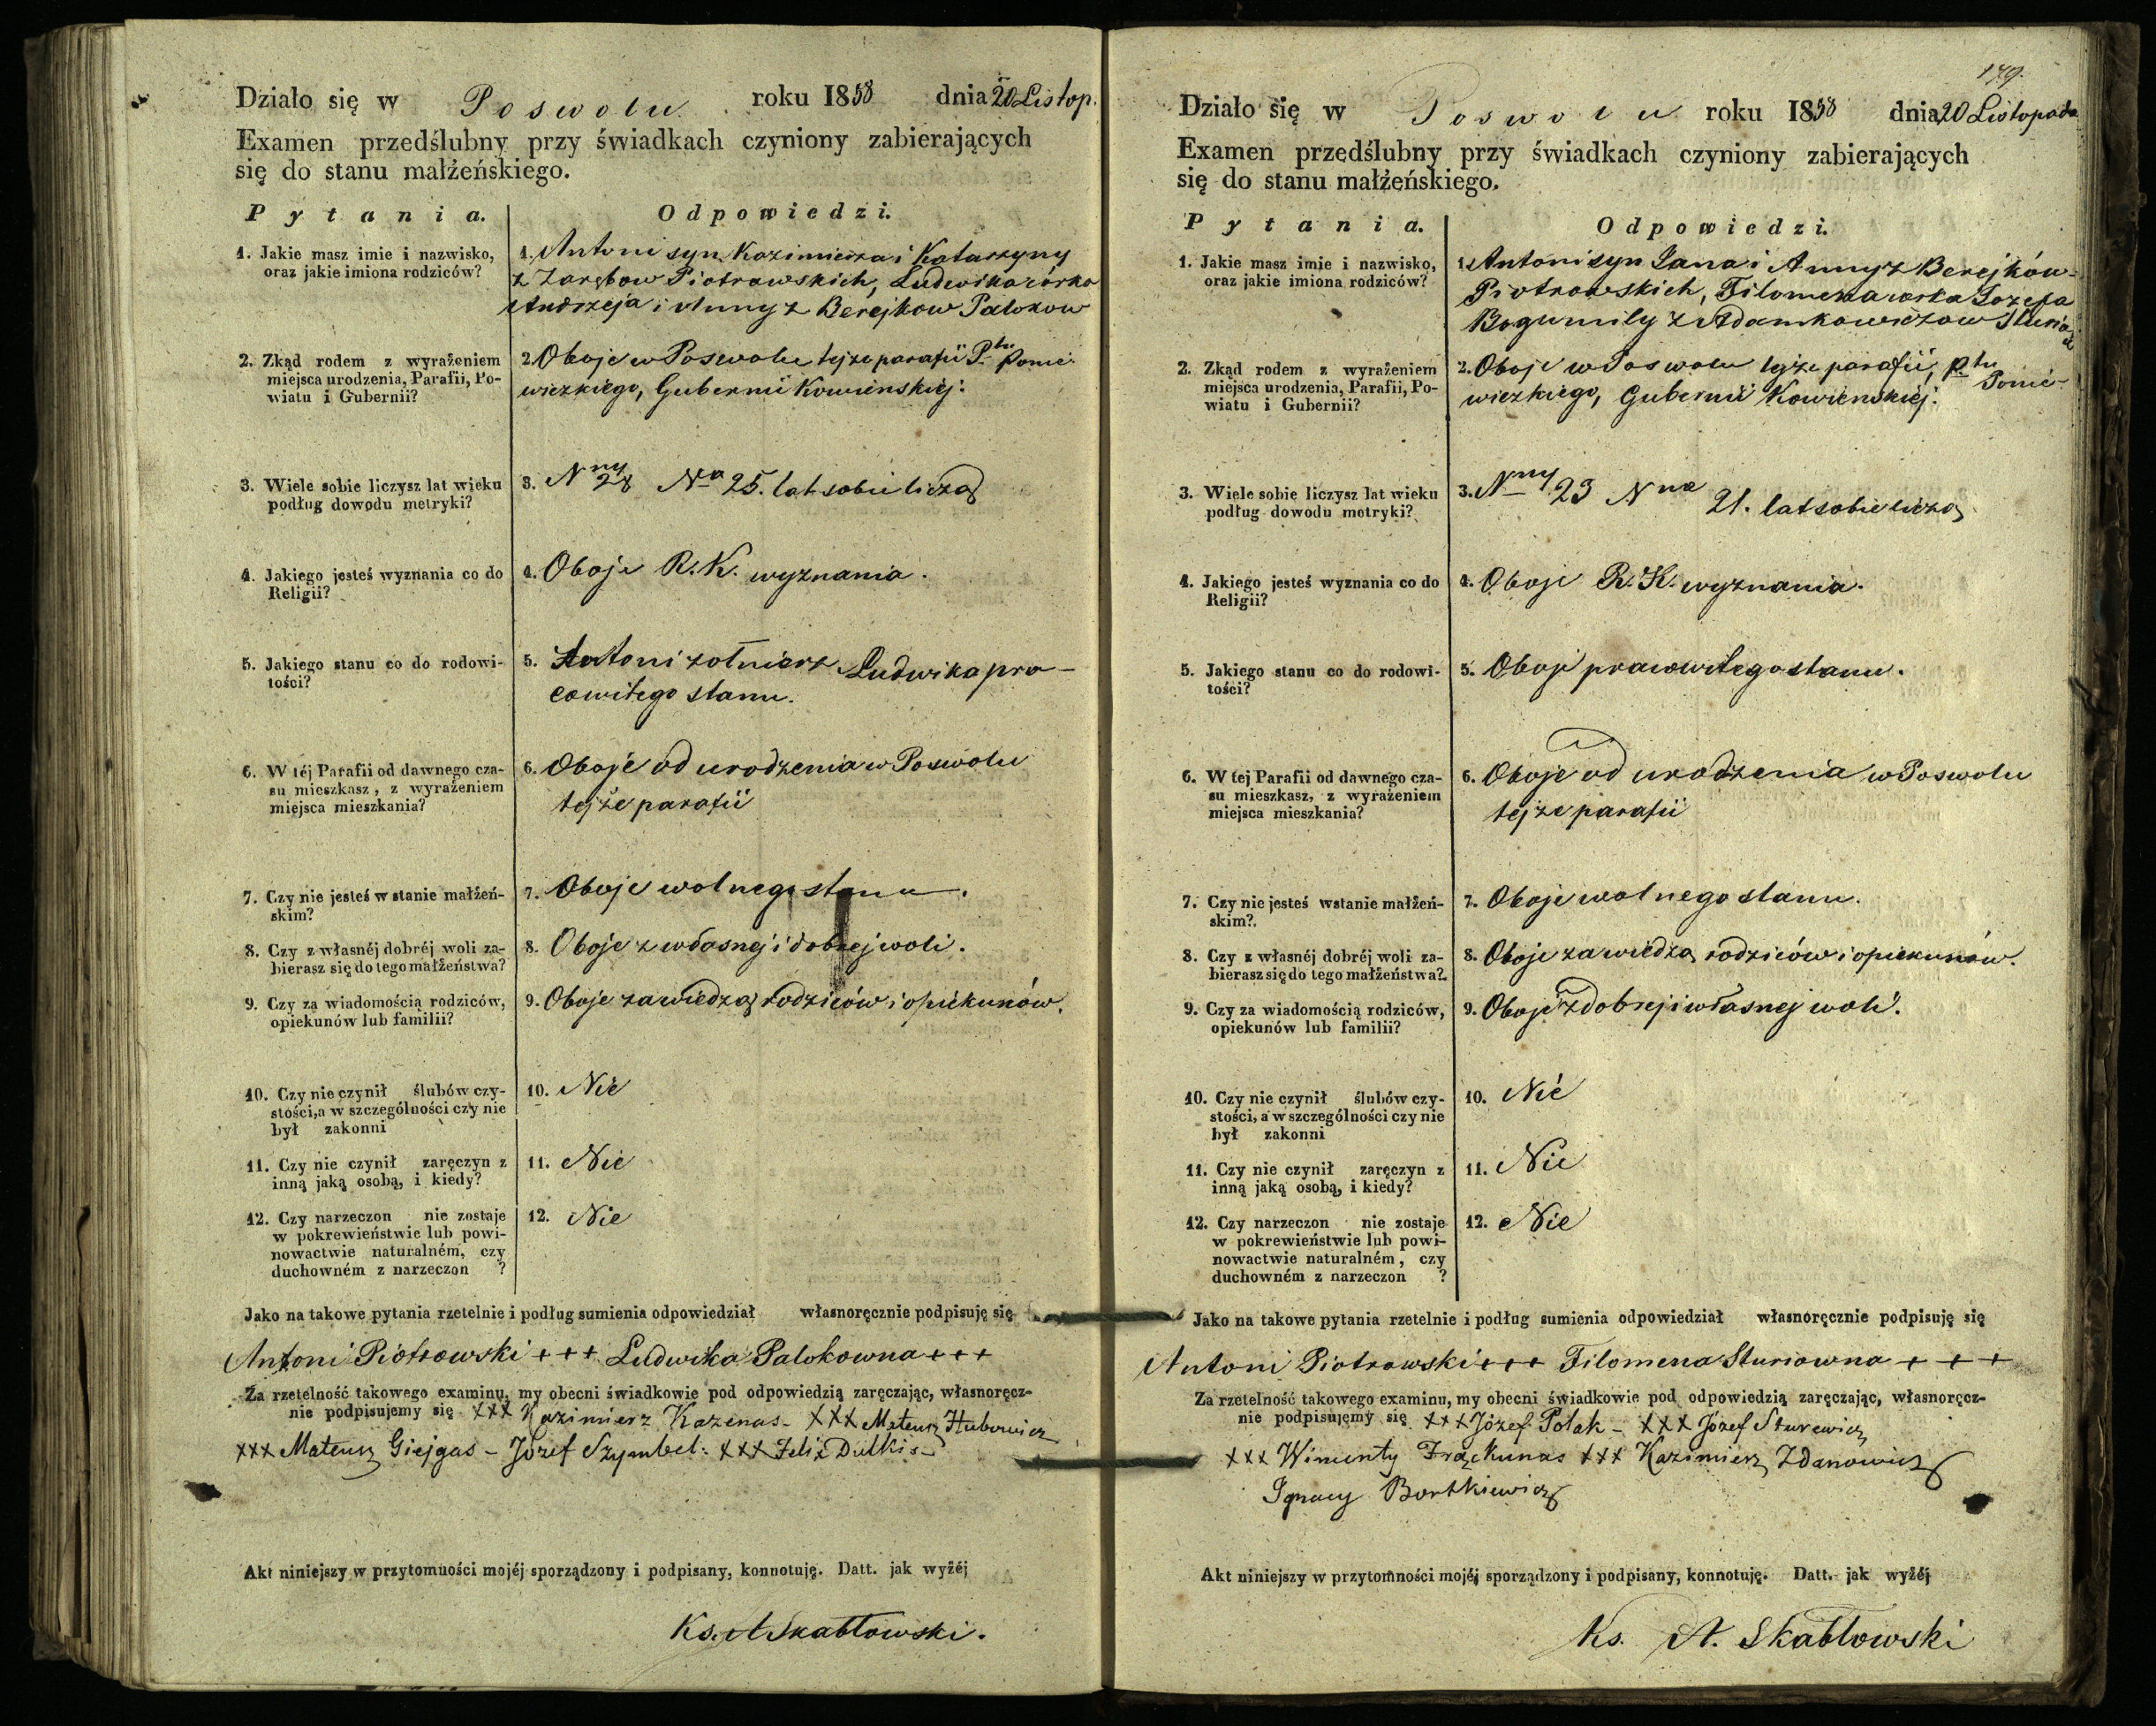 Działo się w Poswolu roku 1858 dnia 20 Listop.
Examen przedślubny przy świadkach czyniony zabierających
się do stanu małżeńskiego.
Pytania. Odpowiedzi.
1. Jakie masz imie i nazwisko,
oraz jakie imiona rodziców?
1. Antoni syn Kazimierza i Katarzyny
z Zarębow Piotrowskich, Ludwika córka
Andrzeja i Anny z Berejkow Palokow
2. Zkąd rodem z wyrażeniem
miejsca urodzenia, Parafii, Po-
wiatu i Gubernii?
2. Oboje w Poswolu tejże parafii P-tu Ponie-
wiezkiego, Gubernii Kowienskiej.
3. Wiele sobie liczysz lat wieku
podług dowodu metryki?
3. Nny 28 Na 25. lat sobie liczą
4. Jakiego jesteś wyznania co do
Religii?
4. Oboje R. K. wyznania.
5. Jakiego stanu co do rodowi-
tości?
5. Antoni żołnierz Ludwika pra-
cowitego stanu.
6. W téj Parafii od dawnego cza-
su mieszkasz, z wyrażeniem
miejsca mieszkania?
6. Oboje od urodzenia w Poswolu
tejże parafii
7. Czy nie jesteś w stanie małżeń-
skim?
7. Oboje wolnego stanu.
8. Czy z własnéj dobréj woli za-
bierasz się do tego małżeństwa?
8. Oboje z własnej i dobrej woli.
9. Czy za wiadomością rodziców,
opiekunów lub familii?
9. Oboje za wiedzą rodziców i opiekunów.
10. Czy nie czynił ślubów czy-
stości, a w szczególności czy nie
był zakonni
10. Nie
11. Czy nie czynił zaręczyn z
inną jaką osobą, i kiedy?
11. Nie
12. Czy narzeczon nie zostaje
w pokrewieństwie lub powi-
nowactwie naturalném, czy
duchowném z narzeczon ?
12. Nie
Jako na takowe pytania rzetelnie i podług sumienia odpowiedział własnoręcznie podpisuję się
Antoni Piotrowski +++ Ludwika Palokowna +++
Za rzetelność takowego examinu, my obecni świadkowie pod odpowiedzią zaręczając, własnoręcz-
nie podpisujemy się xxx Kazimierz Kazenas - xxx Mateusz Hubowicz
xxx Mateusz Giejgas - Józef Szymbel: xxx Felix Dulkis -
Akt niniejszy w przytomności mojéj sporządzony i podpisany, konnotuję. Datt. jak wyżéj
Ks. A Skabłowski.
179.
Działo się w Poswolu roku 1858 dnia 20 Listopada
Examen przedślubny przy świadkach czyniony zabierających
się do stanu małżeńskiego.
Pytania. Odpowiedzi.
1. Jakie masz imie i nazwisko,
oraz jakie imiona rodziców?
1. Antoni syn Jana i Anny z Berejków
Piotrowskich, Filomena córka Jozefa
Bogumiły z Adamkowiczow
2. Zkąd rodem z wyrażeniem
miejsca urodzenia, Parafii, Po-
wiatu i Gubernii?
2. Oboje w Poswolu tejże parafii, P-tu Ponie-
wiezkiego, Gubernii Kowienskiej.
3. Wiele sobie liczysz lat wieku
podług dowodu metryki?
3. Nny 23 Nna 21. lat sobie liczą
4. Jakiego jesteś wyznania co do
Religii?
4. Oboje R. K. wyznania.
5. Jakiego stanu co do rodowi-
tości?
5. Oboje pracowitego stanu.
6. W tej Parafii od dawnego cza-
su mieszkasz, z wyrażeniem
miejsca mieszkania?
6. Oboje od urodzenia w Poswolu
tejże parafii
7. Czy nie jesteś wstanie małżeń-
skim?
7. Oboje wolnego stanu.
8. Czy z własnéj dobréj woli za-
bierasz się do tego małżeństwa?
8. Oboje za wiedzą rodziców i opiekunów.
9. Czy za wiadomością rodziców,
opiekunów lub familii?
9. Oboje z dobrej i własnej woli.
10. Czy nie czynił ślubów czy-
stości, a w szczególności czy nie
był zakonni
10. Nie
11. Czy nie czynił zaręczyn z
inną jaką osobą, i kiedy?
11. Nie
12. Czy narzeczon nie zostaje
w pokrewieństwie lub powi-
nowactwie naturalném, czy
duchowném z narzeczon ?
12. Nie
Jako na takowe pytania rzetelnie i podług sumienia odpowiedział własnoręcznie podpisuję się
Antoni Piotrowski +++ Filomena Sturiowna +++
Za rzetelność takowego examinu, my obecni świadkowie pod odpowiedzią zaręczając, własnoręcz-
nie podpisujemy się xxx Józef Polak - xxx Józef Sturewicz
xxx Wincenty Frąckunas xxx Kazimierz Zdanowicz
Ignacy Bortkiewicz
Akt niniejszy w przytomności mojéj sporządzony i podpisany, konnotuję. Datt. jak wyżéj
Ks. A. Skabłowski